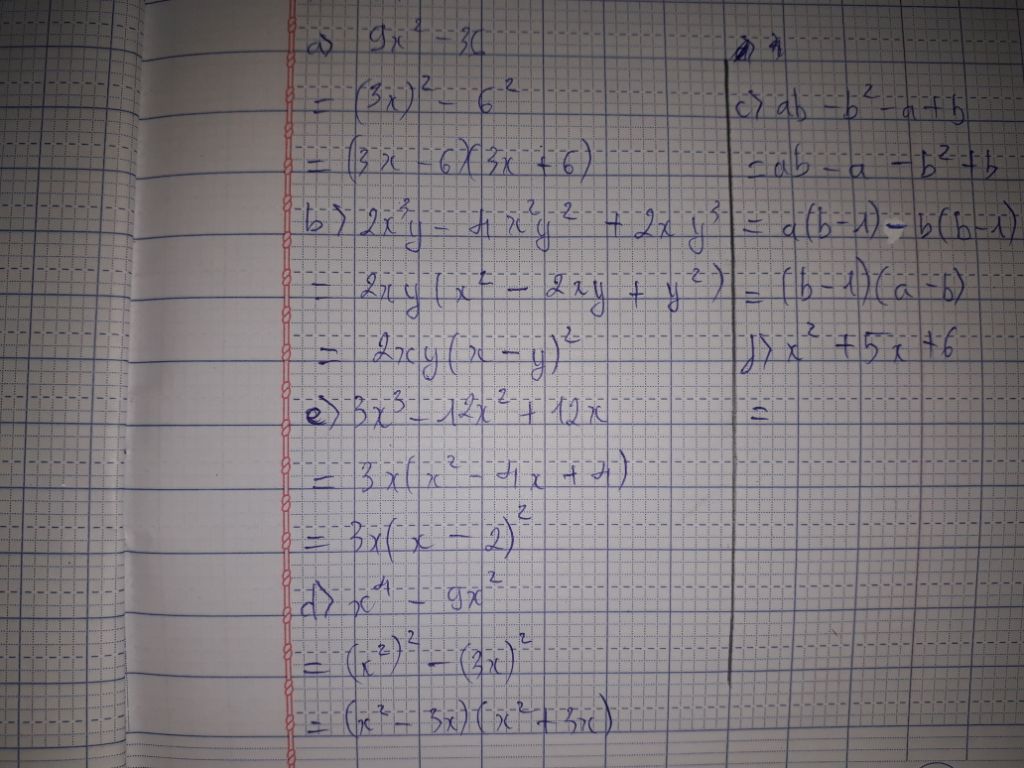 a) 9x² - 36
= (3x)² - 6²
= (3x - 6)(3x + 6)
b) 2x³y - 4x²y² + 2xy³
= 2xy(x² - 2xy + y²)
= 2xy(x - y)²
c) 3x³ - 12x² + 12x
= 3x(x² - 4x + 4)
= 3x(x - 2)²
d) x⁴ - 9x²
= (x²)² - (3x)²
= (x² - 3x)(x² + 3x)
c) ab - b² - a + b
= ab - a - b² + b
= a(b - 1) - b(b - 1)
= (b - 1)(a - b)
f) x² + 5x + 6
=